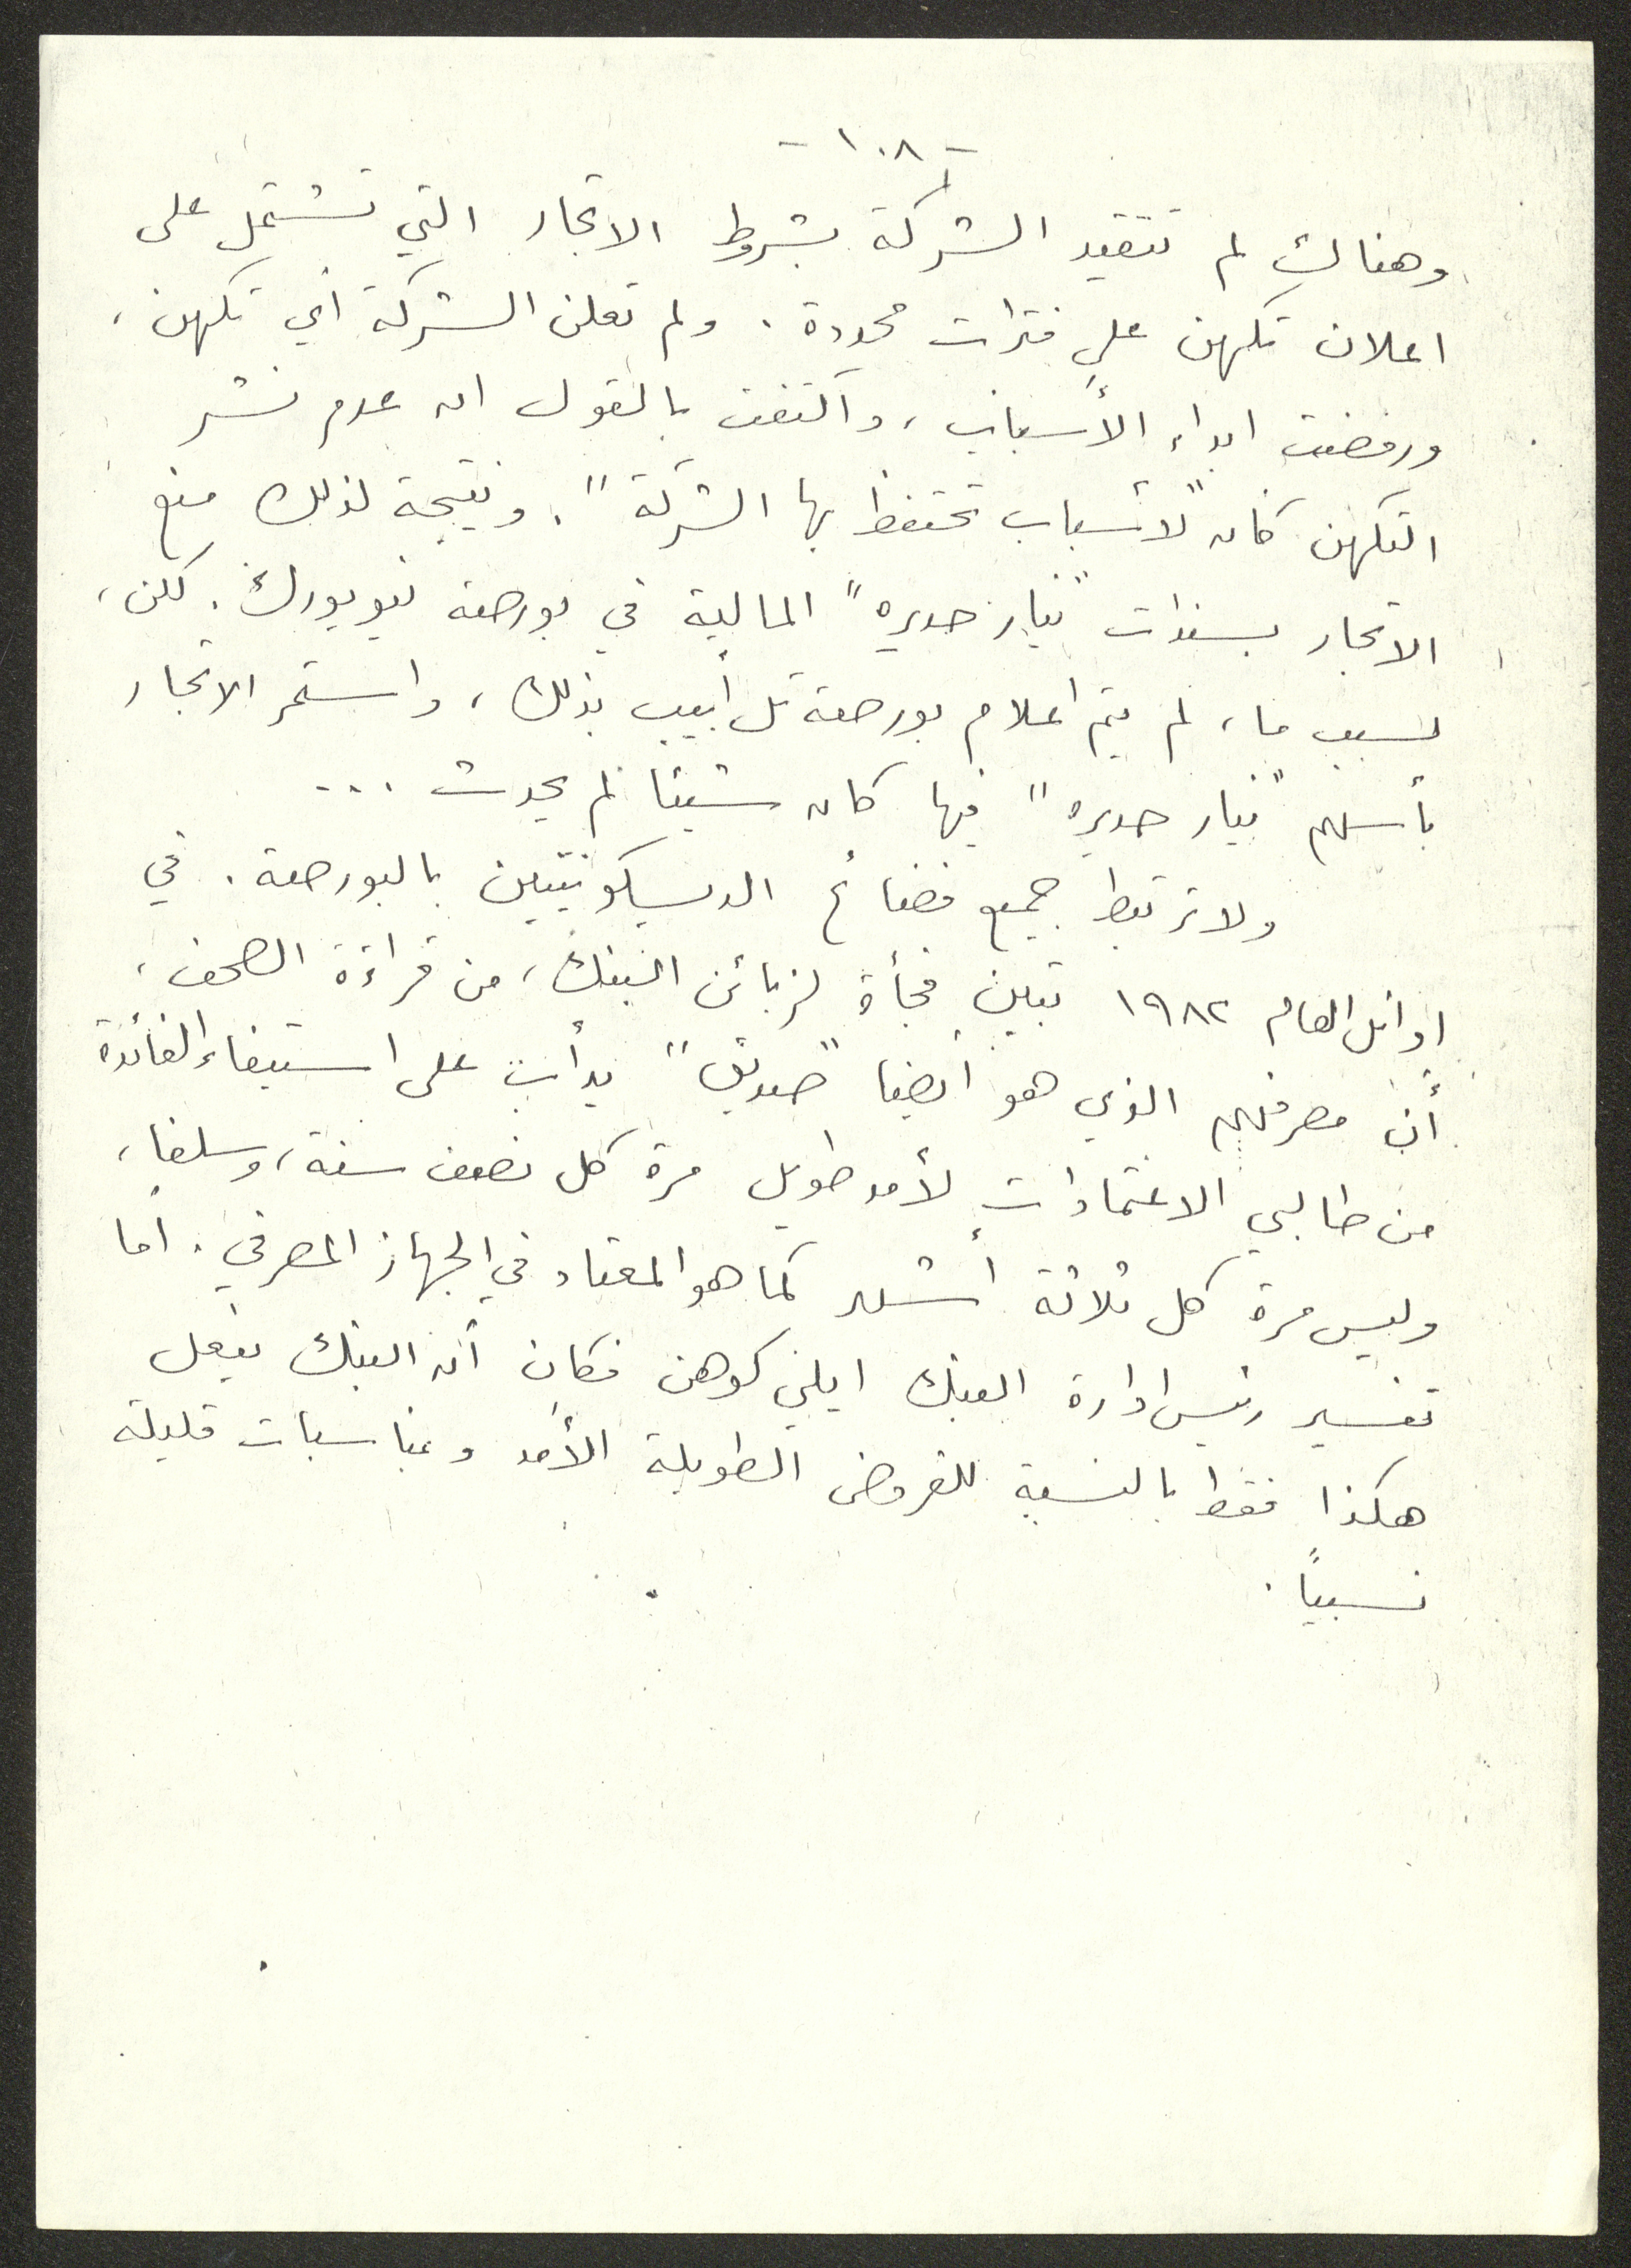 - ١٠٨ -
وهناك لم تتقيد الشركة بشروط الاتجار التي تشتمل على
اعلان تكهن على فترات محددة. ولم تعلن الشركة أي تكهن،
ورفضت ابداء الأسباب، واكتفت بالقول ان عدم نشر
التكهن كان "لأسباب تحتفظ بها الشركة". ونتيجة لذلك منع
الاتجار بسندات "نيار حديره" المالية في بورصة نيويورك. لكن،
لسبب ما، لم يتم اعلام بورصة تل أبيب بذلك، واستمر الاتجار
بأسهم "نيار حديره" فيها كان شيئا لم يحدث ...
ولا ترتبط جميع فضائح الديسكونتيين بالبورصة. في
اوائل العام ١٩٨٢ تبين فجأة لزبائن البنك، من قراءة الصحف،
أن مصرفهم الذي هو أيضا "صديق" يدأب على استيفاء الفائدة
من طالبي الاعتمادات لأمد طويل مرة كل نصف سنة، وسلفا،
وليس مرة كل ثلاثة أشهر كما هو المعتاد في الجهاز المصرفي. أما
تفسير رئيس ادارة البنك ايلي كوهن فكان أن البنك يفعل
هكذا فقط بالنسبة للقروض الطويلة الأمد وبمناسبات قليلة
نسبياً.